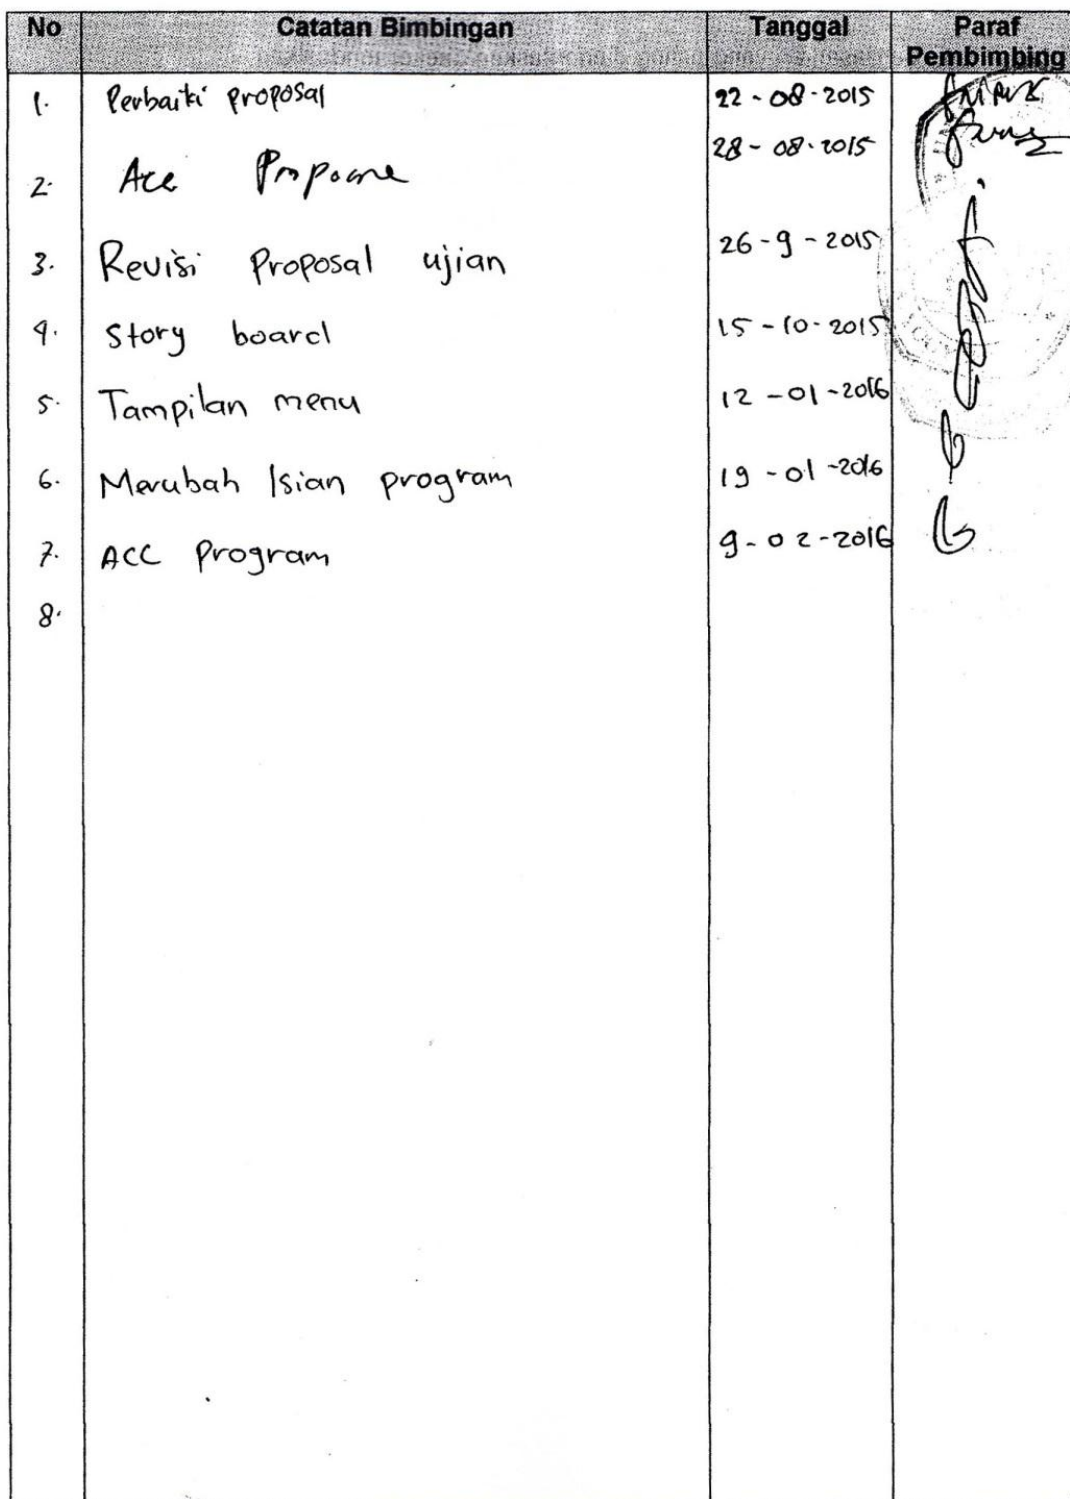 No Catatan Bimbingan Tanggal Paraf Pembimbing
1. Perbaiki proposal 22-08-2015
2. Acc 28-08-2015
3. Revisi Proposal ujian 26-9-2015
4. Story board 15-10-2015
5. Tampilan menu 12-01-2016
6. Merubah Isian program 19-01-2016
7. ACC Program 9-02-2016
8.